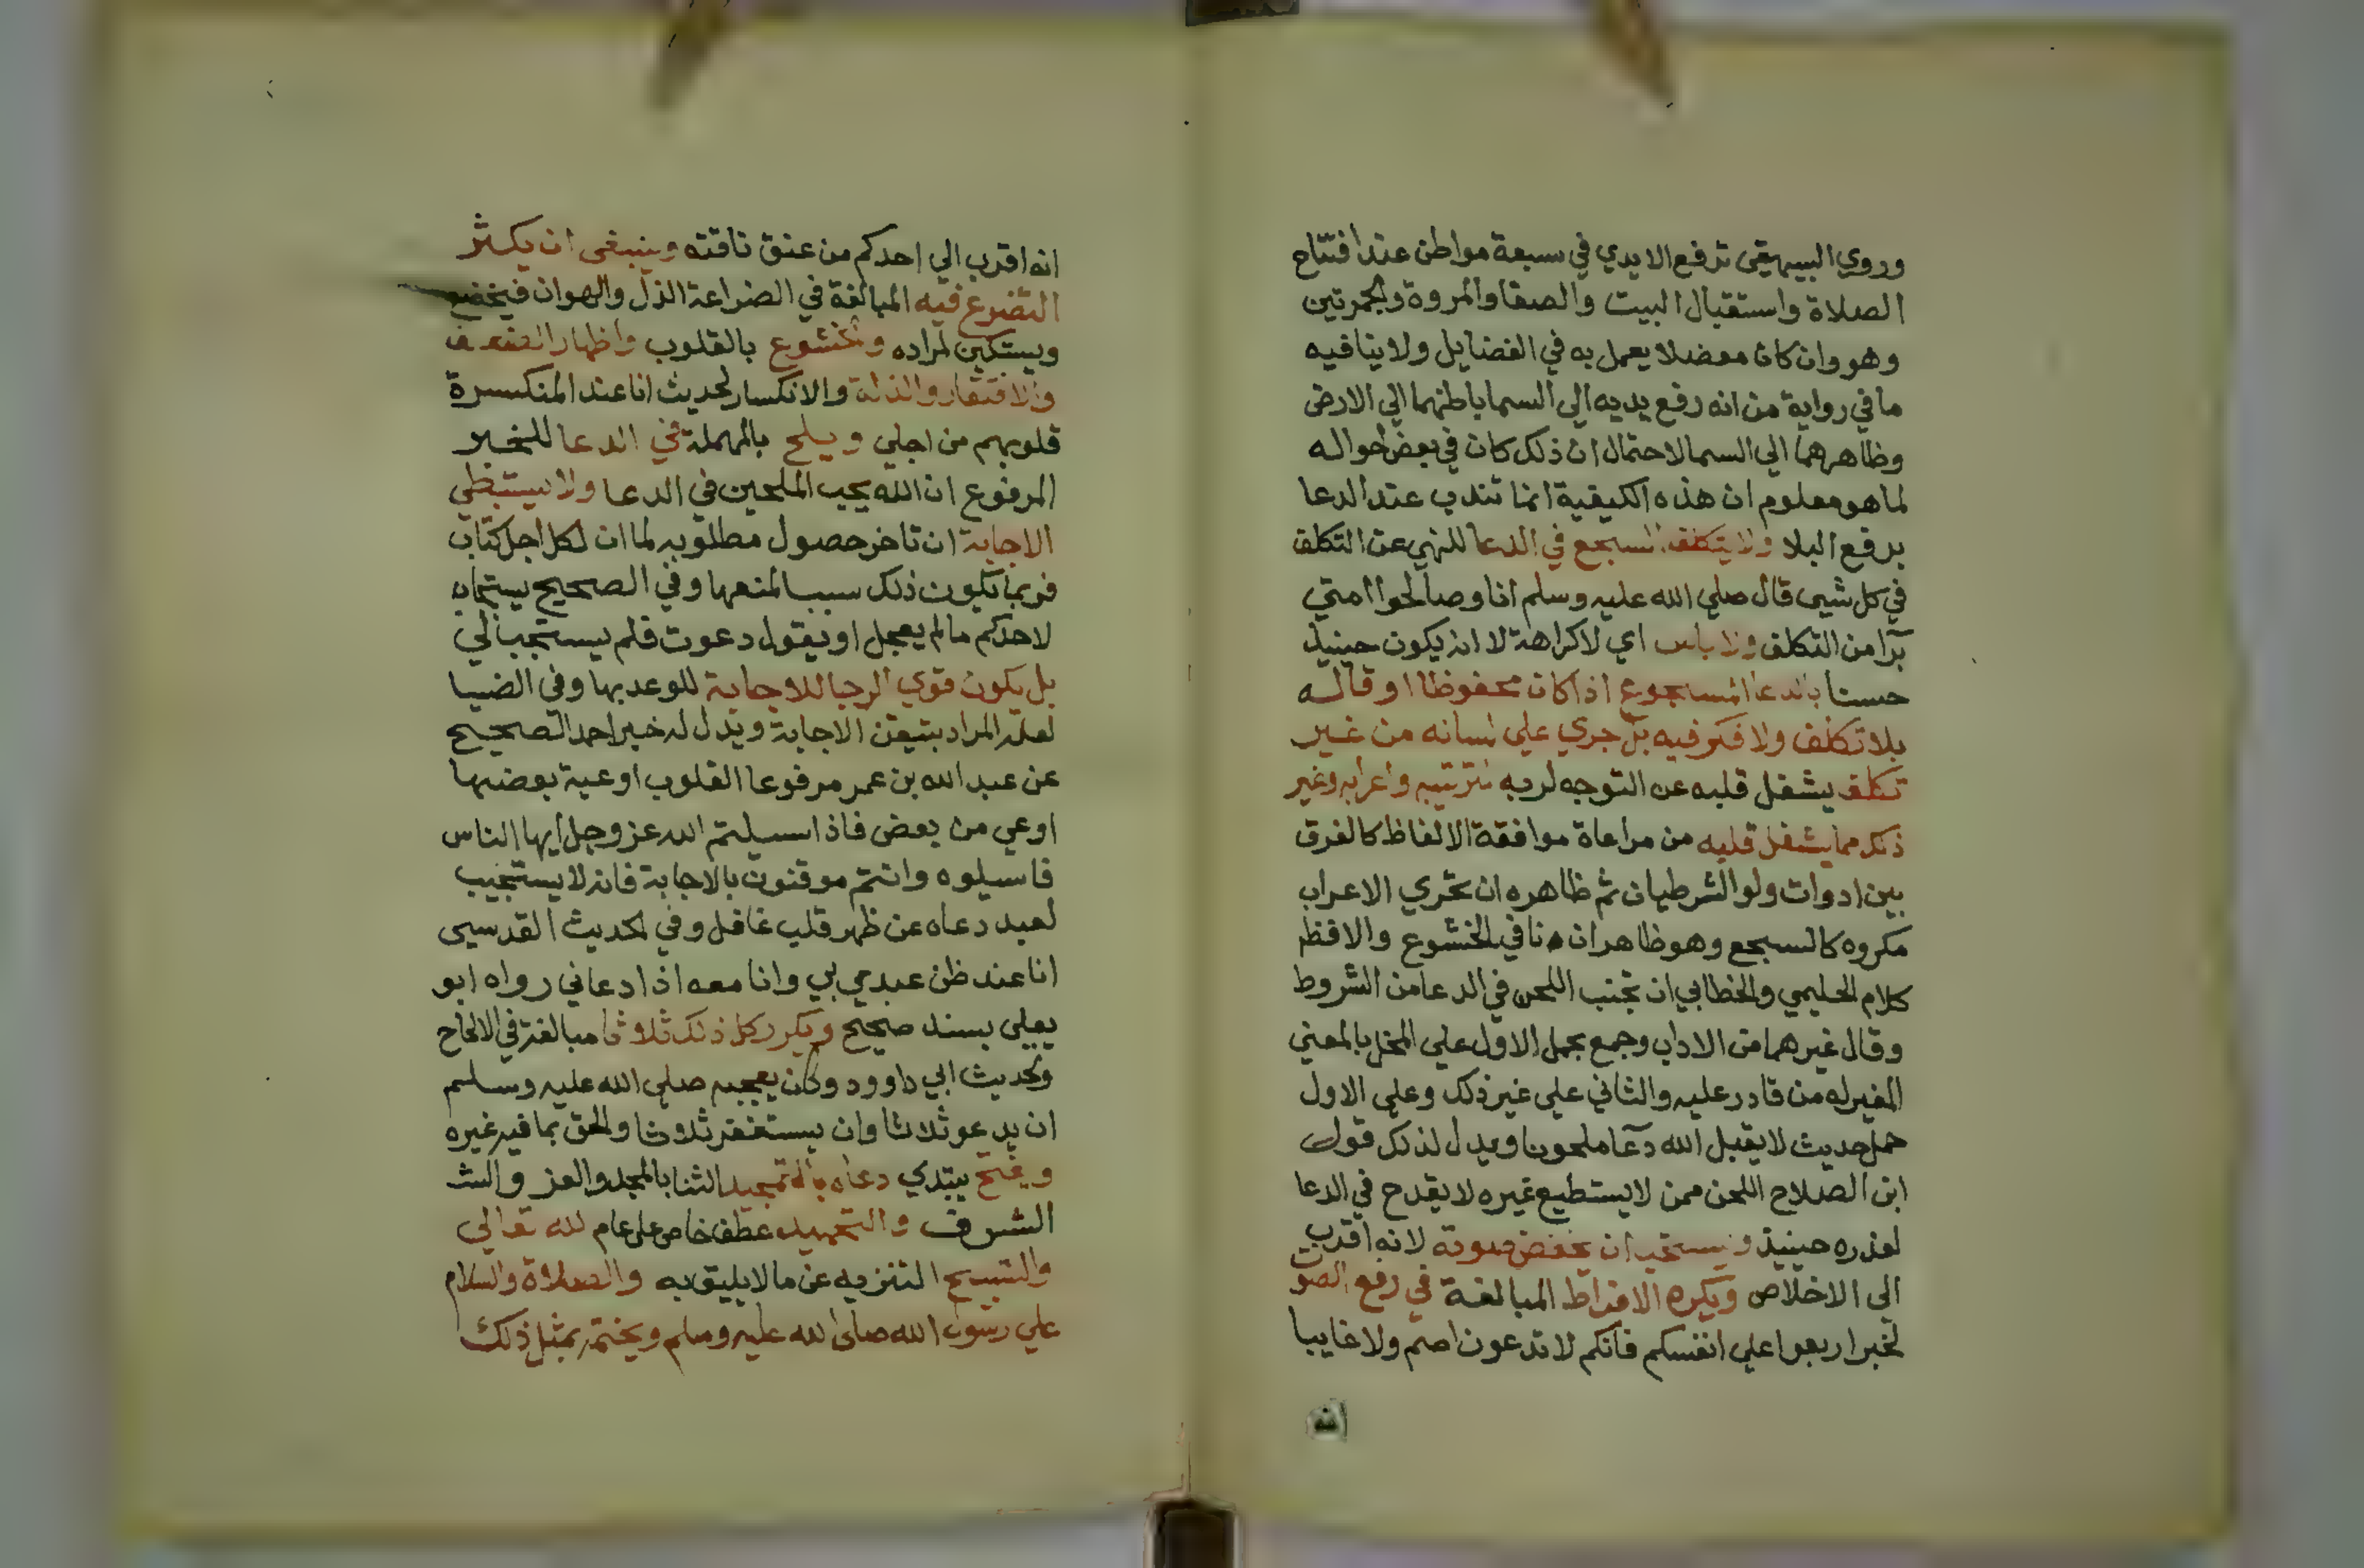 وروي البيهقي ترفع الايدي في سبعة مواطن عند افتتاح
الصلاة واستقبال البيت والصفا والمروة والجمرتين
وهو وان كان معضلا يعمل به في الفضايل ولا ينافيه
ما في رواية من انه رفع يديه الي السما باطنهما الي الارض
وظاهرهما الي السما لاحتمال ان ذلك كان في بعض احواله
لما هو معلوم ان هذه الكيفية انما تندب عند الدعا
برفع البلا ولا يتكلف السجع في الدعا للنهي عن التكلف
في كل شيى قال صلي الله عليه وسلم انا وصالحوا امتي
برآ من التكلف ولا باس اي لا كراهة لا انه يكون حينيذ
حسنا بالدعا المسجوع اذا كان محفوظا او قاله
بلا تكلف ولا فكر فيه بل جري علي لسانه من غير
تكلف يشغل قلبه عن التوجه لربه بترتيبه واعرابه وغير
ذلك مما يشغل قلبه من مراعاة موافقة الالفاظ كالفرق
بين ادوات ولو الشرطيان ثم ظاهره ان تحري الاعراب
مكروه كالسجع وهو ظاهر ان نافي الخشوع والا فظ
كلام الحليمي والخطابي ان تجنب اللحن في الدعا من الشروط
وقال غيرهما من الاداب وجمع بحمل الاول علي المخل بالمعني
المغير له من قادر عليه والثاني علي غير ذلك وعلي الاول
حمل حديث لا يقبل الله دعآ ملحونا ويدل لذلك قول
ابن الصلاح اللحن ممن لا يستطيع غيره لا يقدح في الدعا
لعذره حينيذ ويستحب ان يخفض صوته لانه اقرب
الي الاخلاص ويكره الافراط المبالغة في رفع الصوت
لخبر اربعوا علي انفسكم فانكم لا تدعون اصم ولا غايبا
انه
انه اقرب الي احدكم من عنق ناقته وينبغي ان يكثر
التضرع فيه المبالغة في الضراعة الذل والهوان فيخضع
ويستكين لمراده والخشوع بالقلوب واظهار الضعف
والافتقار والذلة والانكسار لحديث انا عند المنكسرة
قلوبهم من اجلي ويلح بالمهملة في الدعا للخبر
المرفوع ان الله يحب الملحين في الدعا ولا يستبطي
الاجابة ان تاخر حصول مطلوبه لما ان لكل اجل كتاب
فربما يكون ذلك سببا لمنعها وفي الصحيح يستجاب
لاحدكم ما لم يعجل او يقول دعوت فلم يستجب لي
بل يكون قوي الرجا للاجابة للوعد بها وفي الضيا
لعله المراد بتيقن الاجابة ويدل له خبر احمد الصحيح
عن عبد الله بن عمر مرفوعا القلوب اوعية بعضها
اوعي من بعض فاذا اسيلتم الله عز وجل ايها الناس
فاسيلوه وانتم موقنون بالاجابة فانه لا يستجيب
لعبد دعاه عن ظهر قلب غافل وفي الحديث القدسيى
انا عند ظن عبدي بي وانا معه اذا دعاني رواه ابو
يعلي بسند صحيح ويكرر كل ذلك ثلاثا مبالغة في الالحاح
ولحديث ابي داوود وكان يعجبه صلي الله عليه وسلم
ان يدعو ثلاثا وان يستغفر ثلاثا والحق بما فيه غيره
ويفتح يبتدي دعاه بالتمجيد الثنا بالمجد والعز والش
الشرف والتحميد عطف خاص علي عام لله تعالي
والتسبيح التنزيه عن ما لا يليق به والصلاة والسلام
علي رسول الله صلى الله عليه وسلم ويختمه بمثل ذلك